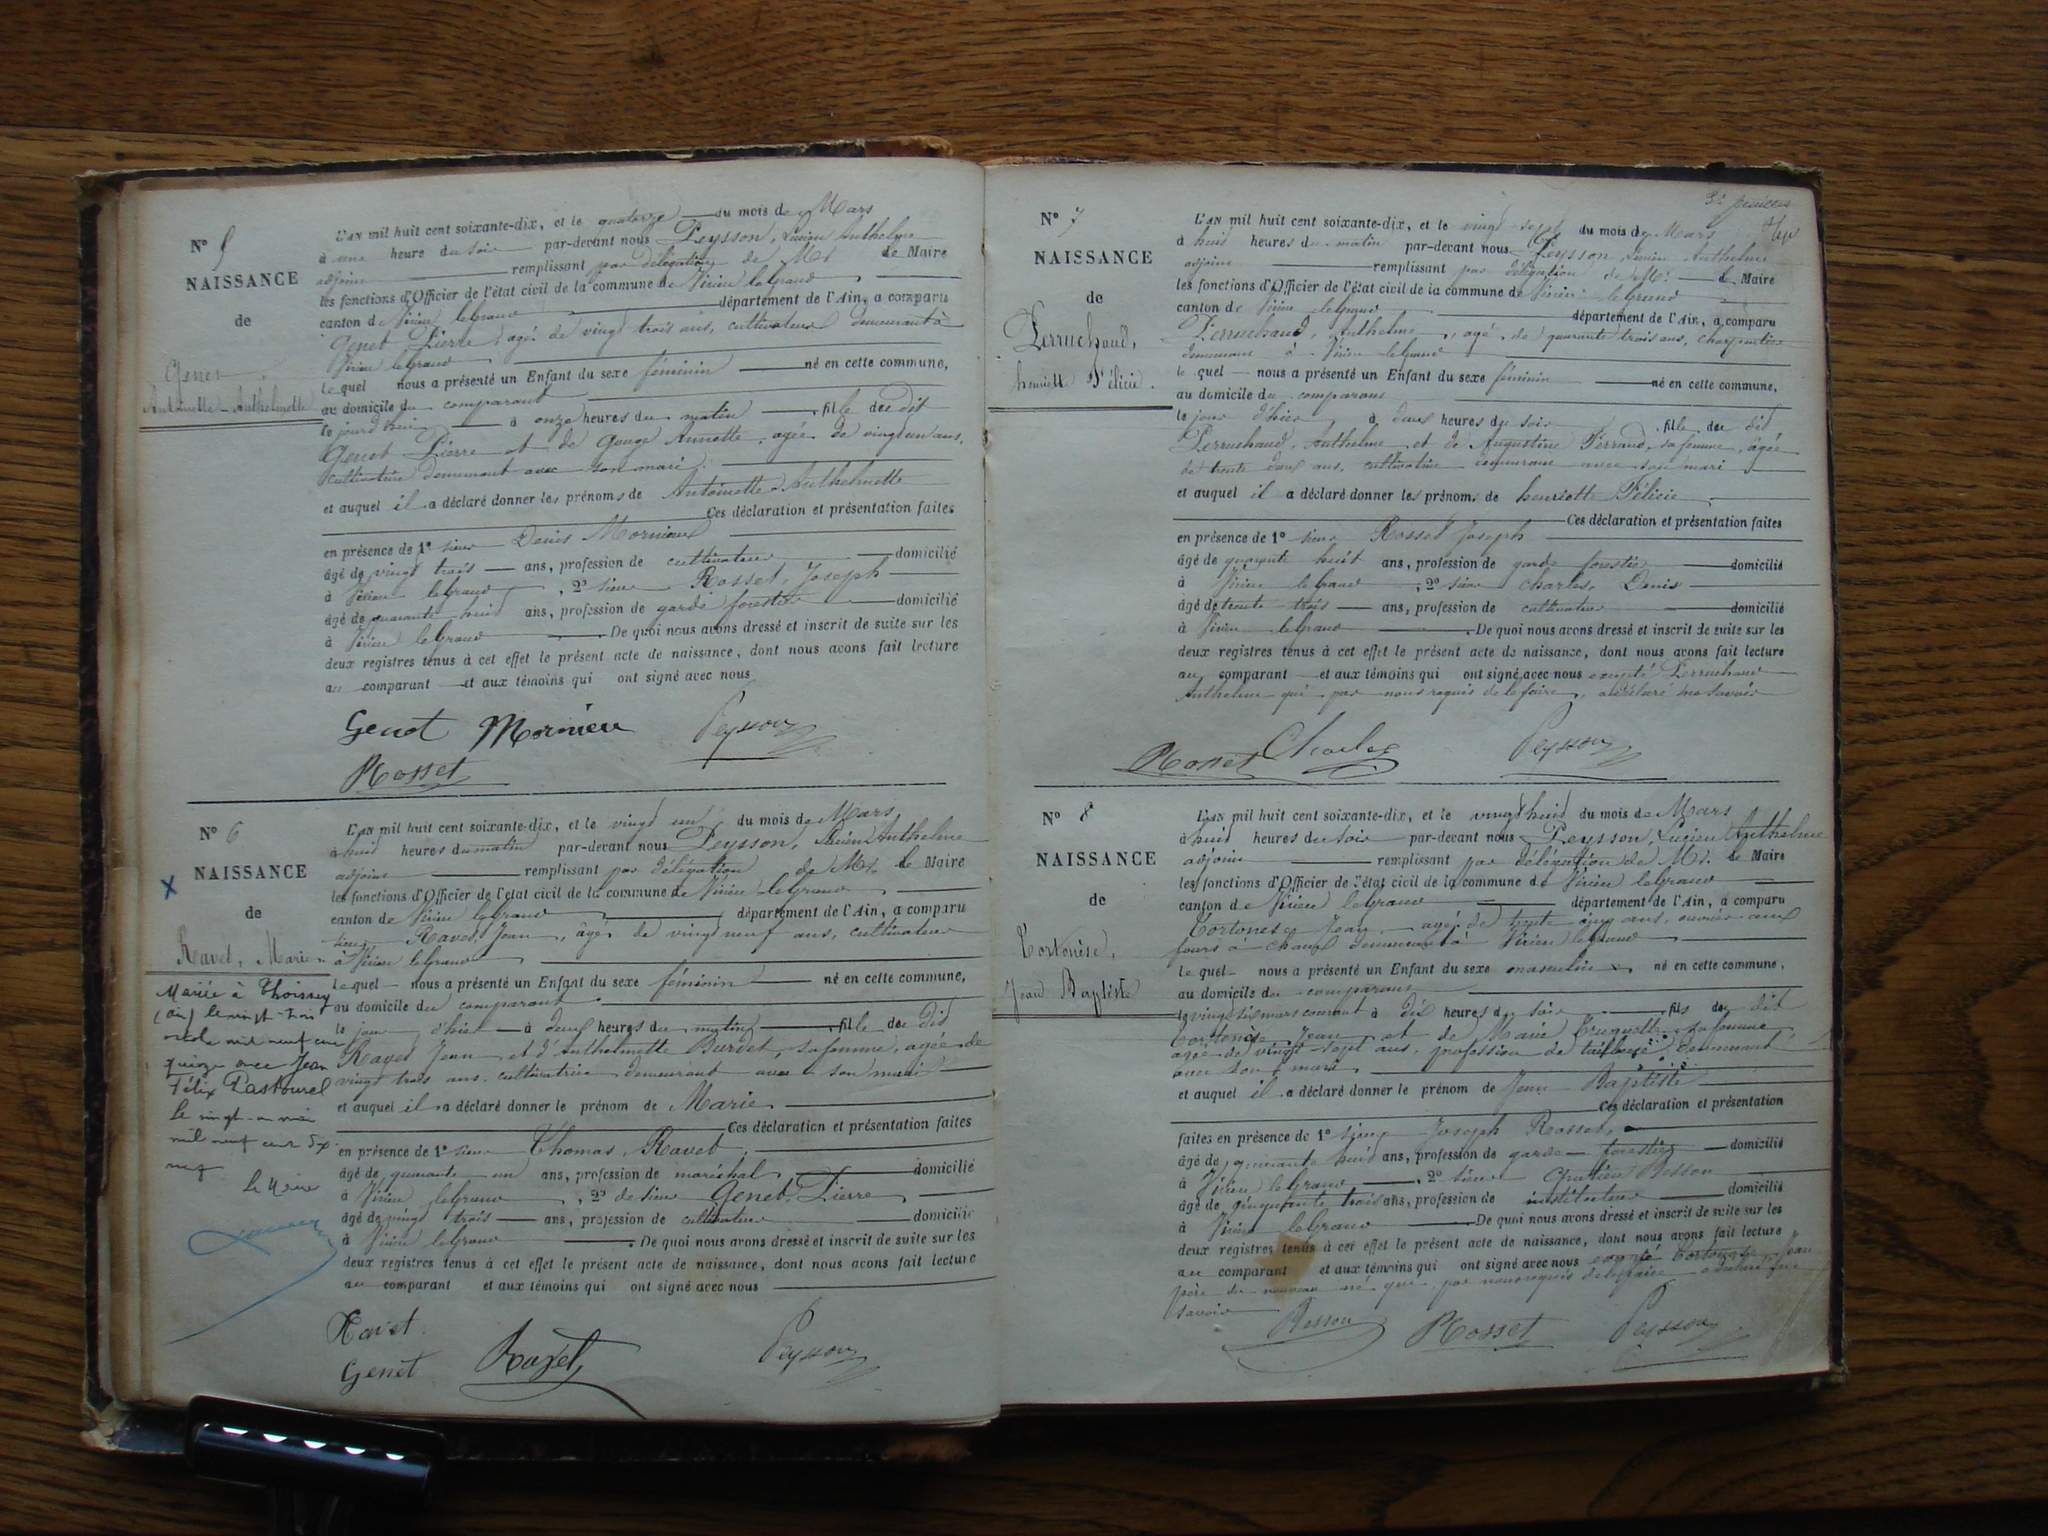 N° 5
NAISSANCE
de
Genet
Antoinette-Anthelmette
L'AN mil huit cent soixante-dix, et le quatorze du mois de Mars
à une heure du soir par-devant nous Peysson, Lucien Anthelme
adjoint remplissant par délégation de Mr. le Maire
les fonctions d'Officier de l'état civil de la commune de Virieu le Grand
canton de Virieu le Grand département de l'Ain, a comparu
Genet Pierre, agé de vingt trois ans, cultivateur demeurant à
Virieu le Grand
le quel nous a présenté un Enfant du sexe féminin né en cette commune,
au domicile du comparant
le jourd'hui à onze heures du matin fille du dit
Genet Pierre et de Gouge Annette, agée de vingt un ans,
cultivatrice demeurant avec son mari.
et auquel il a déclaré donner les prénoms de Antoinette-Anthelmette
Ces déclaration et présentation faites
en présence de 1° sieur Denis Mornieux
âgé de vingt trois ans, profession de cultivateur domicilié
à Virieu le Grand, 2° sieur Rosset, Joseph
âgé de quarante huit ans, profession de garde forestier domicilié
à Virieu le Grand. De quoi nous avons dressé et inscrit de suite sur les
deux registres tenus à cet effet le présent acte de naissance, dont nous avons fait lecture
au comparant et aux témoins qui ont signé avec nous
Genet Mornieu Peysson
Rosset
N° 6
NAISSANCE
de
Ravet, Marie
Mariée à Thoissey
(Ain) le vingt-trois
octobre mil neuf cent
quinze avec Jean
Félix Pastourel
le vingt-un mai
mil neuf cent dix
neuf
Le Maire
L'AN mil huit cent soixante-dix, et le vingt un du mois de Mars
à huit heures du matin par-devant nous Peysson, Lucien Anthelme
adjoint remplissant par délégation de Mr. le Maire
les fonctions d'Officier de l'état civil de la commune de Virieu le Grand
canton de Virieu le Grand département de l'Ain, a comparu
sieur Ravet, Jean, âgé de vingt neuf ans, cultivateur
à Virieu le Grand
le quel nous a présenté un Enfant du sexe féminin né en cette commune,
au domicile du comparant
le jour d'hier à deux heures du matin, fille du dit
Ravet Jean et d'Anthelmette Burdet, sa femme, agée de
vingt trois ans cultivatrice demeurant avec son mari
et auquel il a déclaré donner le prénom de Marie
Ces déclaration et présentation faites
en présence de 1° sieur Thomas, Ravet
âgé de quarante un ans, profession de maréchal domicilié
à Virieu le Grand, 2° de sieur Genet, Pierre
âgé de vingt trois ans, profession de cultivateur domicilié
à Virieu le Grand. De quoi nous avons dressé et inscrit de suite sur les
deux registres tenus à cet effet le présent acte de naissance, dont nous avons fait lecture
au comparant et aux témoins qui ont signé avec nous
Ravet
Genet Ravet Peysson
N° 7
NAISSANCE
de
Perruchaud,
henriette Félicie.
L'AN mil huit cent soixante-dix, et le vingt-sept du mois de Mars
à huit heures du matin par-devant nous Peysson, Lucien Anthelme
adjoint remplissant par délégation de Mr. le Maire
les fonctions d'Officier de l'état civil de la commune de Virieu le Grand
canton de Virieu le Grand département de l'Ain, a comparu
Perruchaud, Anthelme, agé de quarante trois ans, charpentier
demeurant à Virieu le Grand
le quel nous a présenté un Enfant du sexe féminin né en cette commune,
au domicile du comparant
le jour d'hier, à deux heures du soir fille du dit
Perruchaud, Anthelme et de Augustine Ferrand, sa femme, âgée
de trente deux ans, cultivatrice demeurant avec son mari
et auquel il a déclaré donner les prénoms de henriette Félicie
Ces déclaration et présentation faites
en présence de 1° sieur Rosset Joseph
âgé de quarante huit ans, profession de garde forestier domicilié
à Virieu le Grand, 2° sieur Charles, Denis
âgé de trente trois ans, profession de cultivateur domicilié
à Virieu le Grand. De quoi nous avons dressé et inscrit de suite sur les
deux registres tenus à cet effet le présent acte de naissance, dont nous avons fait lecture
au comparant et aux témoins qui ont signé avec nous excepté Perruchaud
Anthelme qui par nous requis de le faire, a déclaré ne savoir
Rosset Charles Peysson
N° 8
NAISSANCE
de
Tortonèse,
Jean Baptiste
L'AN mil huit cent soixante-dix, et le vingt huit du mois de Mars
à huit heures du soir par-devant nous Peysson, Lucien Anthelme
adjoint remplissant par délégation de Mr. le Maire
les fonctions d'Officier de l'état civil de la commune de Virieu le Grand
canton de Virieu le Grand département de l'Ain, a comparu
Tortonèse Jean agé de trente cinq ans, ouvrier aux
fours à chaux demeurant à Virieu le Grand
le quel nous a présenté un Enfant du sexe masculin né en cette commune,
au domicile du comparant
le vingt six mars courant à dix heures du soir fils du dit
Tortonèse Jean et de Marie Truquette sa femme
agée de vingt-sept ans, profession de tailleuse demeurant
avec son mari
et auquel il a déclaré donner le prénom de Jean Baptiste
Ces déclaration et présentation
faites en présence de 1° sieur Joseph Rosset,
âgé de quarante huit ans, profession de garde forestier domicilié
à Virieu le Grand, 2° sieur Besson
âgé de cinquante trois ans, profession de instituteur domicilié
à Virieu le Grand. De quoi nous avons dressé et inscrit de suite sur les
deux registres tenus à cet effet le présent acte de naissance, dont nous avons fait lecture
au comparant et aux témoins qui ont signé avec nous excepté Tortonèse Jean
père du nouveau né que par nous requis de le faire a déclaré ne
savoir
Besson Rosset Peysson